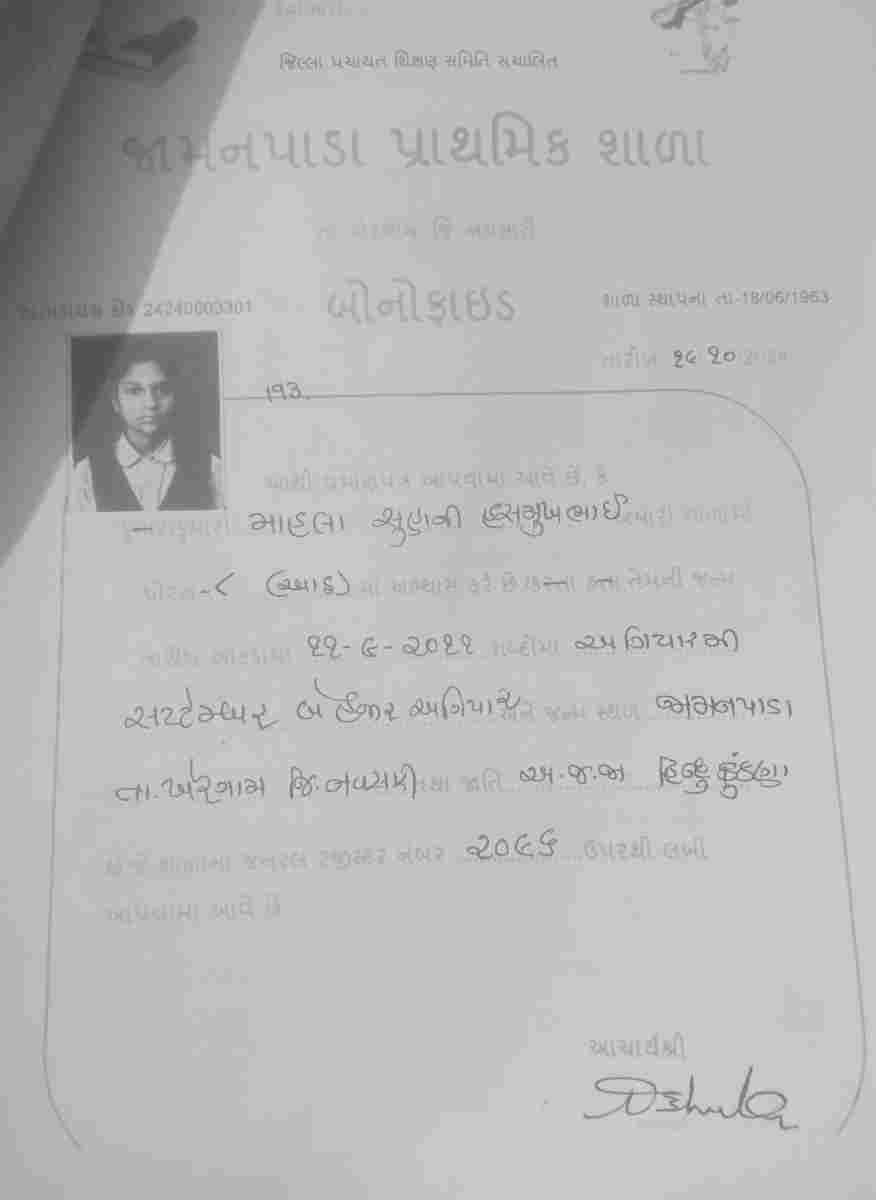 જિલ્લા પંચાયત શિક્ષણ સમિતિ સંચાલિત
જામનપાડા પ્રાથમિક શાળા
તા ખેરગામ જિ નવસારી
કોડ 24240003301
બોનોફાઇડ
શાળા સ્થાપના તા-18/06/1963
તારીખ ૧૯ ૧૦
૧૧૩
આથી પ્રમાણપત્ર આપવામાં આવે છે, કે
માહલા હસમુખભાઈ અમારી શાળામાં
ધોરણ-૮ (આઠ) માં અભ્યાસ કરે છે/કરતા હતા તેમની જન્મ
તારીખ આંકડામાં ૧૧-૯-૨૦૧૧ શબ્દોમાં અગિયારમી
સપ્ટેમ્બર બે હજાર અગિયાર અને જન્મ સ્થળ જામનપાડા
તા.ખેરગામ જિ.નવસારી તથા જાતિ અ.જ.જા હિન્દુ કુંકણા
છે જે શાળાના જનરલ રજીસ્ટર નંબર ૨૦૯૬ ઉપરથી લખી
આપવામાં આવે છે
આચાર્યશ્રી